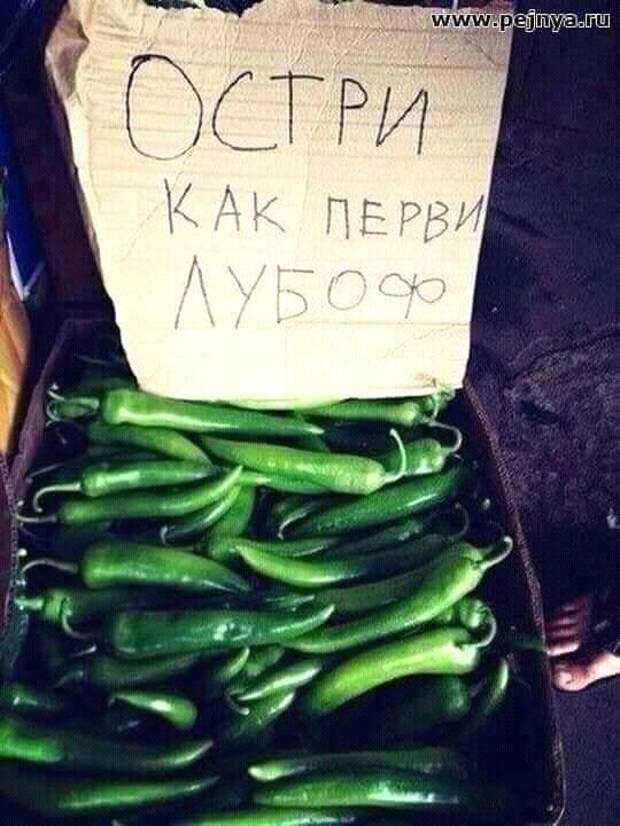 www.pejnya.ru
ОСТРИ
КАК ПЕРВИ
ЛУБОФ